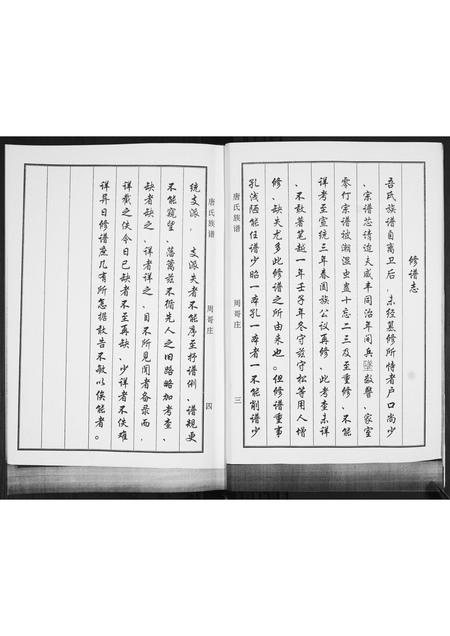 修谱志
吾氏族谱自离卫后，未经纂修所恃者户口尚少
、宗谱芯请迨夫咸丰同治年间兵坠数警、家室
零仃宗谱被潮湿虫蛊十忘二三及至重修、不能
详考至宣统三年春阖族公议再修、此考查未详
、不敢著笔越一年壬子年冬守兹守松等用人增
修、缺失尤多此修谱之所由来也。但修谱重事
孔浅陋能任谱少昭一本孔一本者一不能削谱少
唐氏族谱
周哥庄
三
统支派、支派夫者不能序至抒谱例、谱规更
不能窥望、落篱兹不循先人之旧路略加考查、
缺者缺之、详者详之、目不所见闻者备录而，
详载之佚今日已缺者不至再缺、少详者不佚难
详异日修谱庶几有所怎据敢告不敏以俟能者。
唐氏族谱
周哥庄
四